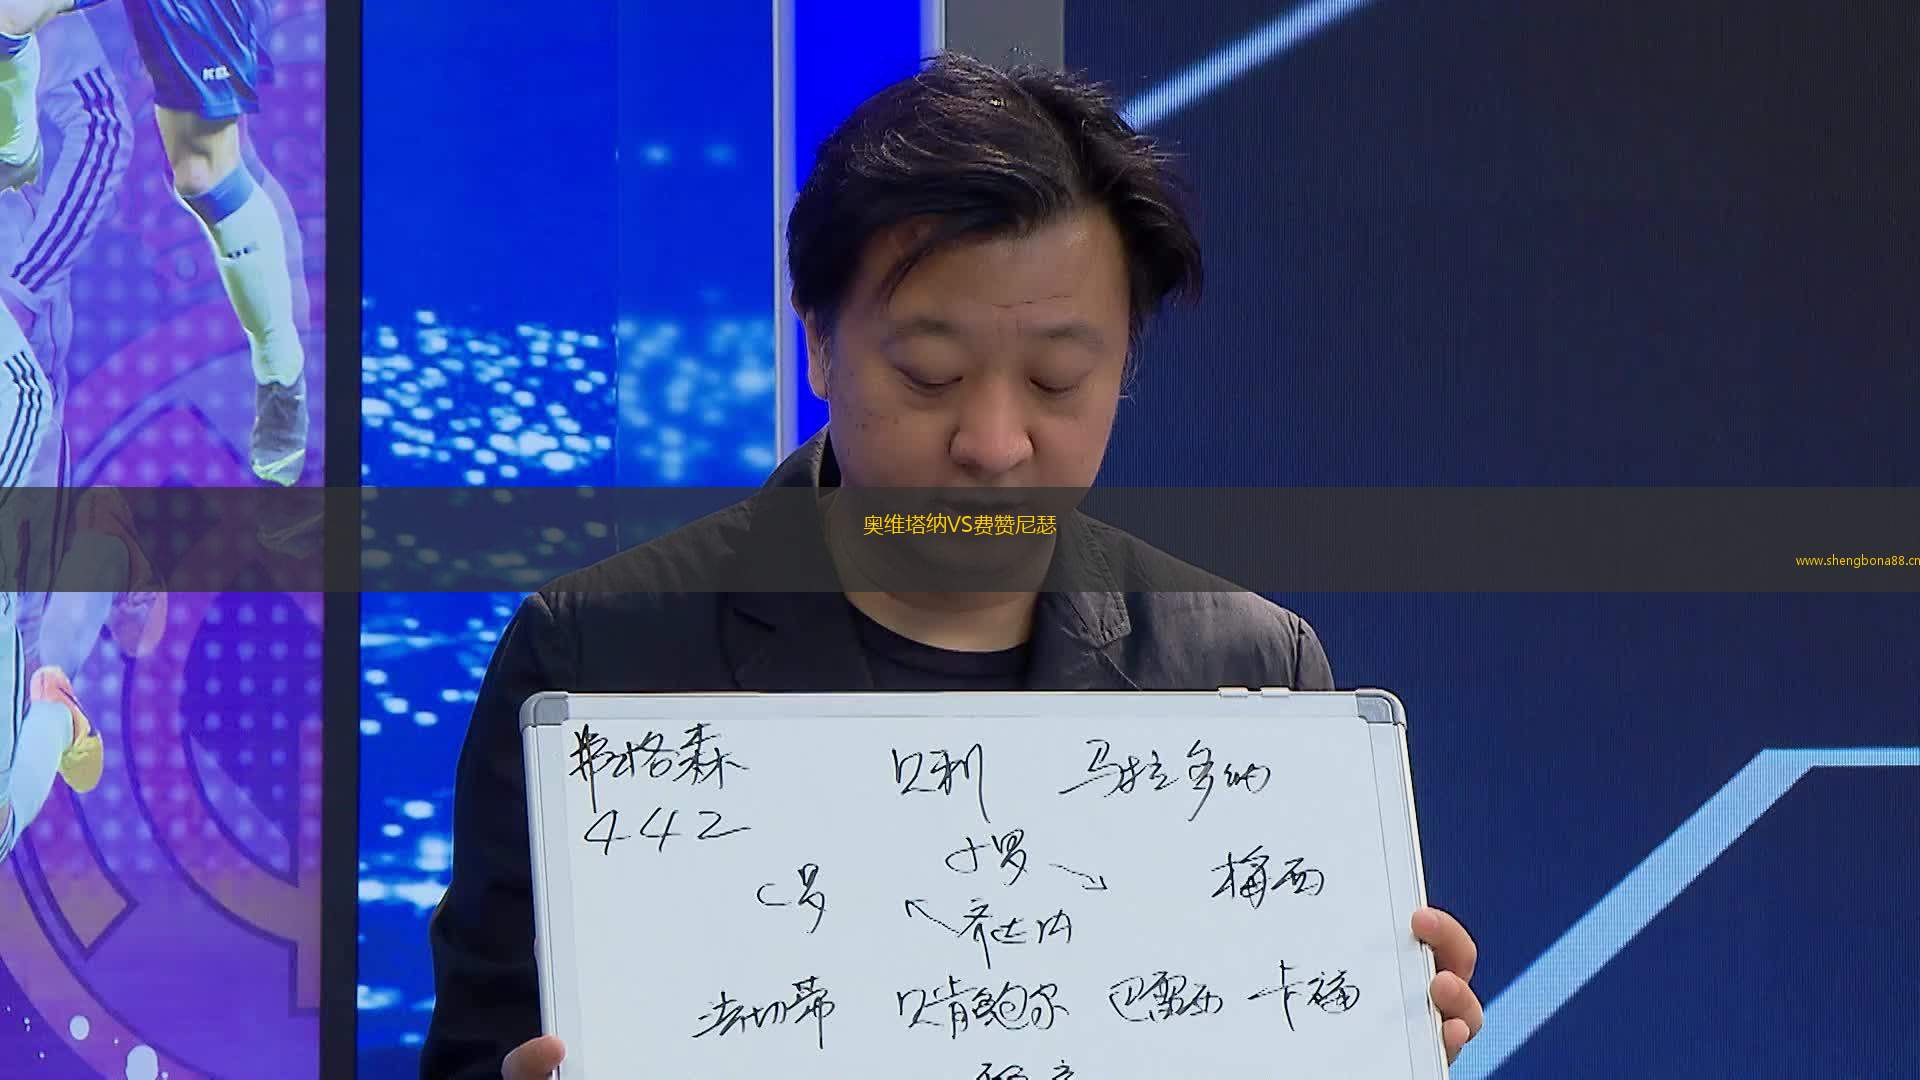 奥维塔纳VS费赞尼瑟
www.shengbona88.cn
弗格森 贝利 马拉多纳
442
小罗
C罗 梅西
齐达内
法切蒂 贝肯鲍尔 巴雷西 卡福